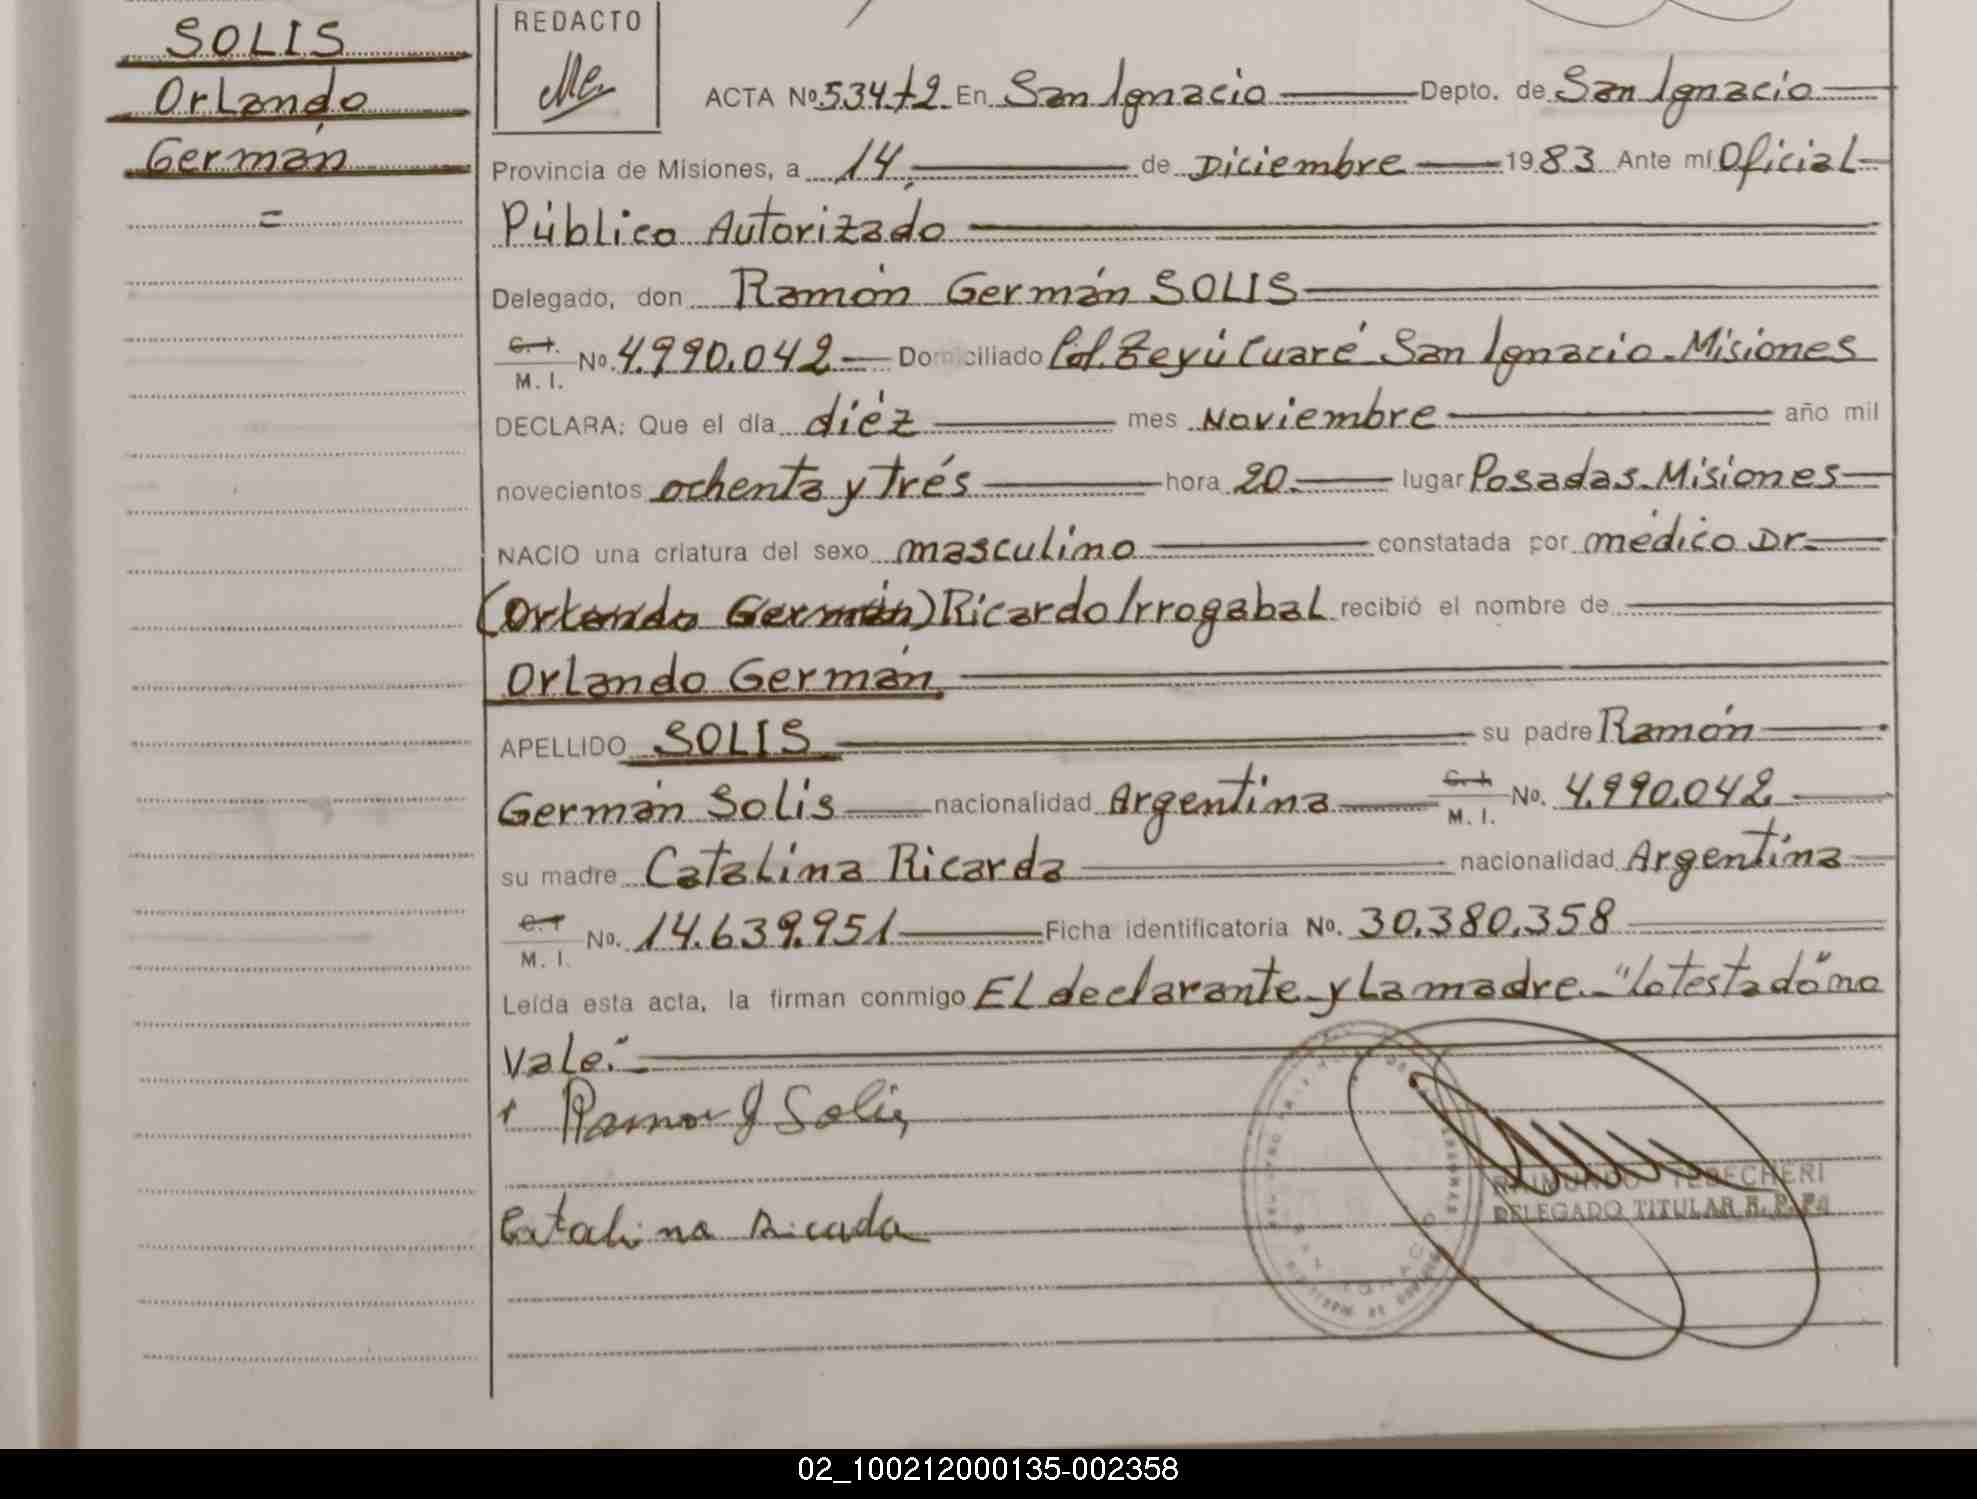 SOLIS
Orlando
Germán
=
REDACTO
ACTA Nº 534 t2 En San Ignacio Depto. de San Ignacio
Provincia de Misiones, a 14. de Diciembre 1983 Ante mí Oficial
Público Autorizado
Delegado, don Ramón Germán SOLIS
C. I. M. I. Nº 4.990.042 Domiciliado Col. Teyú Cuaré San Ignacio-Misiones
DECLARA: Que el día diéz mes Noviembre año mil
novecientos ochenta y trés hora 20. lugar Posadas-Misiones
NACIO una criatura del sexo masculino constatada por médico Dr.
(Orlando Germán) Ricardo Irrogabal recibió el nombre de
Orlando Germán
APELLIDO SOLIS su padre Ramón
Germán Solis nacionalidad Argentina C. I. M. I. Nº. 4.990.042
su madre Catalina Ricarda nacionalidad Argentina
C. I. M. I. Nº. 14.639.951 Ficha identificatoria Nº. 30.380.358
Leída esta acta, la firman conmigo El declarante y la madre.- "lo testado" no
vale".-
Ramon G Solis
Catalina Ricada
TEDECHERI
DELEGADO TITULAR R. P. P.
02_100212000135-002358